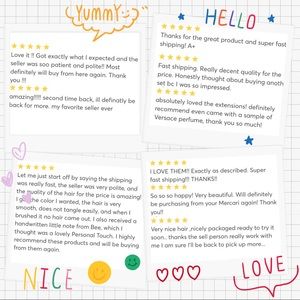 YUMMY
Love it !! Got exactly what I expected and the
seller was soo patient and polite!! Most
definitely will buy from here again. Thank
you !!!
amazing!!!! second time back, ill definatly be
back for more. my favorite seller ever
HELLO
Thanks for the great product and super fast
shipping! A+
Fast shipping. Really decent quality for the
price. Honestly thought about buying anoth
set bc I was so impressed.
absolutely loved the extensions! definitely
recommend even came with a sample of
Versace perfume, thank you so much!
Let me just start off by saying the shipping
was really fast, the seller was very polite, and
the quality of the hair for the price is amazing!
I got the color I wanted, the hair is very
smooth, does not tangle easily, and when I
brushed it no hair came out. I also received a
handwritten little note from Bee, which I
thought was a lovely Personal Touch. I highly
recommend these products and will be buying
from them again.
NICE
I LOVE THEM! Exactly as described. Super
fast shipping!! THANKS!!
So so so happy! Very beautiful. Will definitely
be purchasing from your Mercari again! Thank
you!
Very nice hair ,nicely packaged ready to try it
soon.. thanks the sell person really work with
me I am sure I'll be back to pick up more...
LOVE